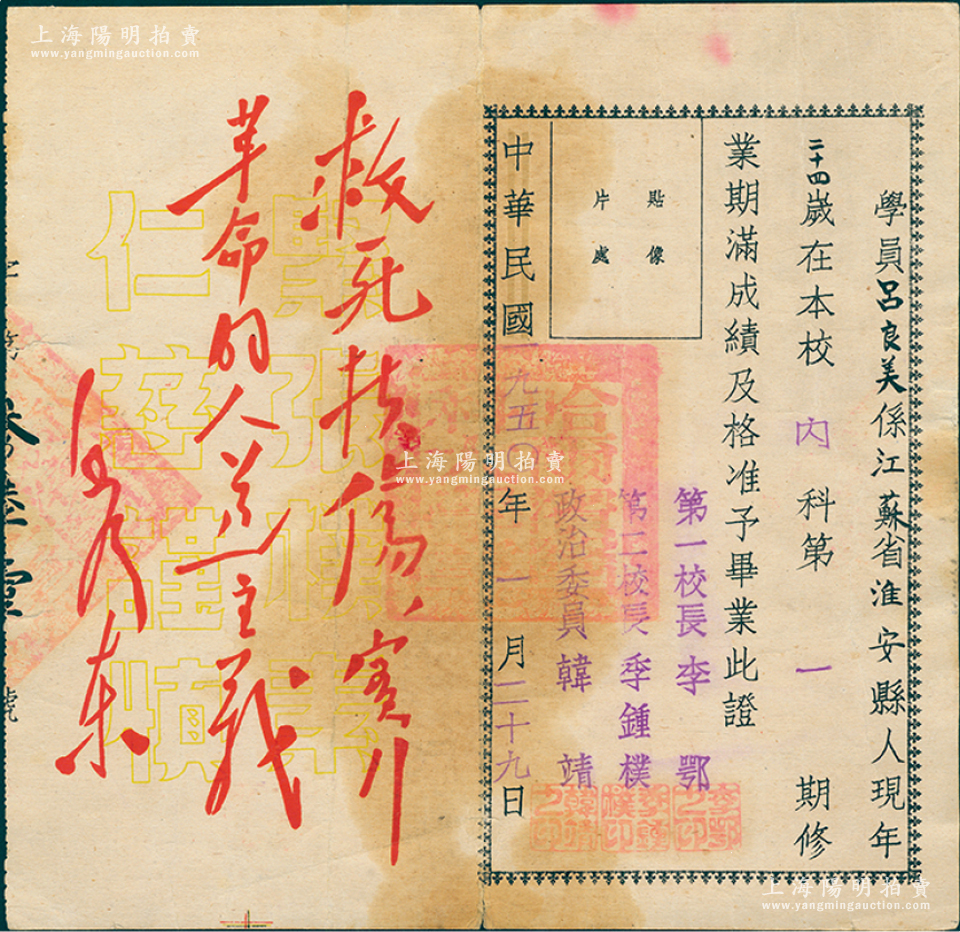 上海陽明拍賣
www.yangmingauction.com
學員呂良美係江蘇省淮安縣人現年
二十四歲在本校內科第一期修
業期滿成績及格准予畢業此證
貼像
片處
第一校長李鄂
第二校長季鍾樸
政治委員韓靖
中華民國一九五〇年一月二十九日
李鄂之印
季鍾樸印
韓靖之印
救死扶傷,實行
革命的人道主義
毛澤東
上海陽明拍賣
www.yangmingauction.com
字第
號
上海陽明拍賣
www.yangmingauction.com